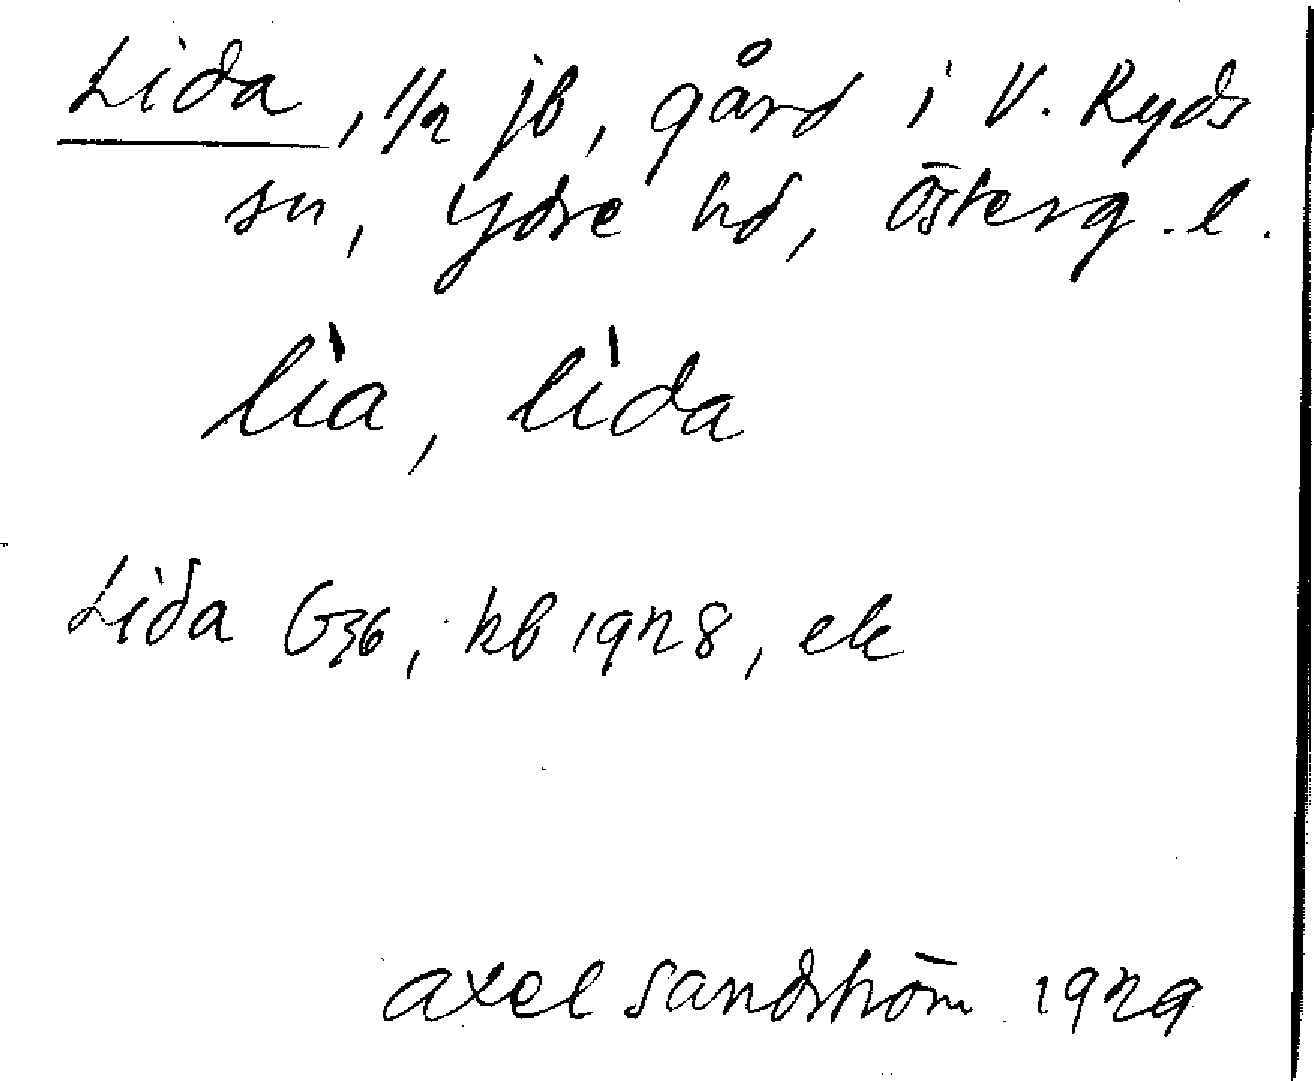 Lida, 1/2 jb, gård i V. Ryds
sn, Ydre hd, Österg. l.
lìa, lìda
Lida G36, kb 1928, ek
Axel Sandström 1929